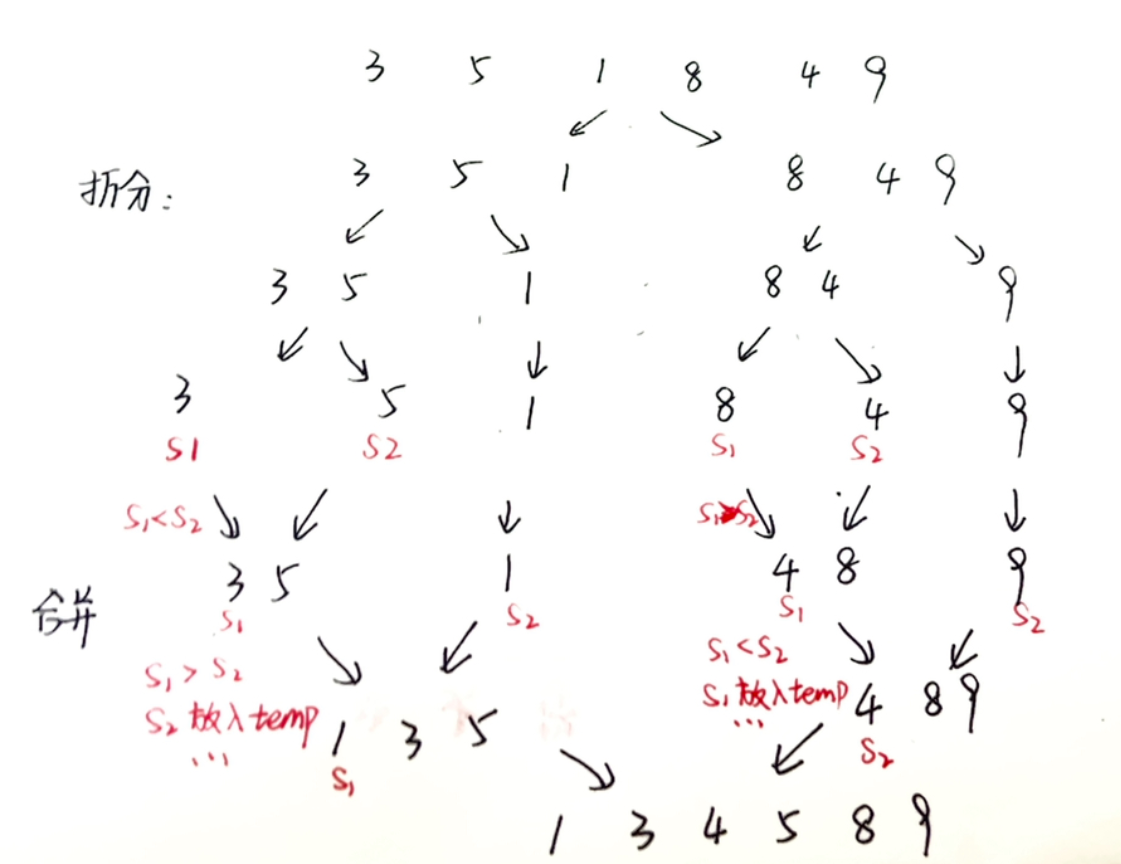 3 5 1 8 4 9
拆分: 3 5 1 8 4 9
3 5 1 8 4 9
3 5 1 8 4 9
S1 S2 S1 S2
S1<S2 S1>S2
3 5 1 4 8 9
合并
S1 S2 S1 S2
S1>S2 S1<S2
S2放入temp S1放入temp 4 8 9
... ...
1 3 5
S1 S2
1 3 4 5 8 9